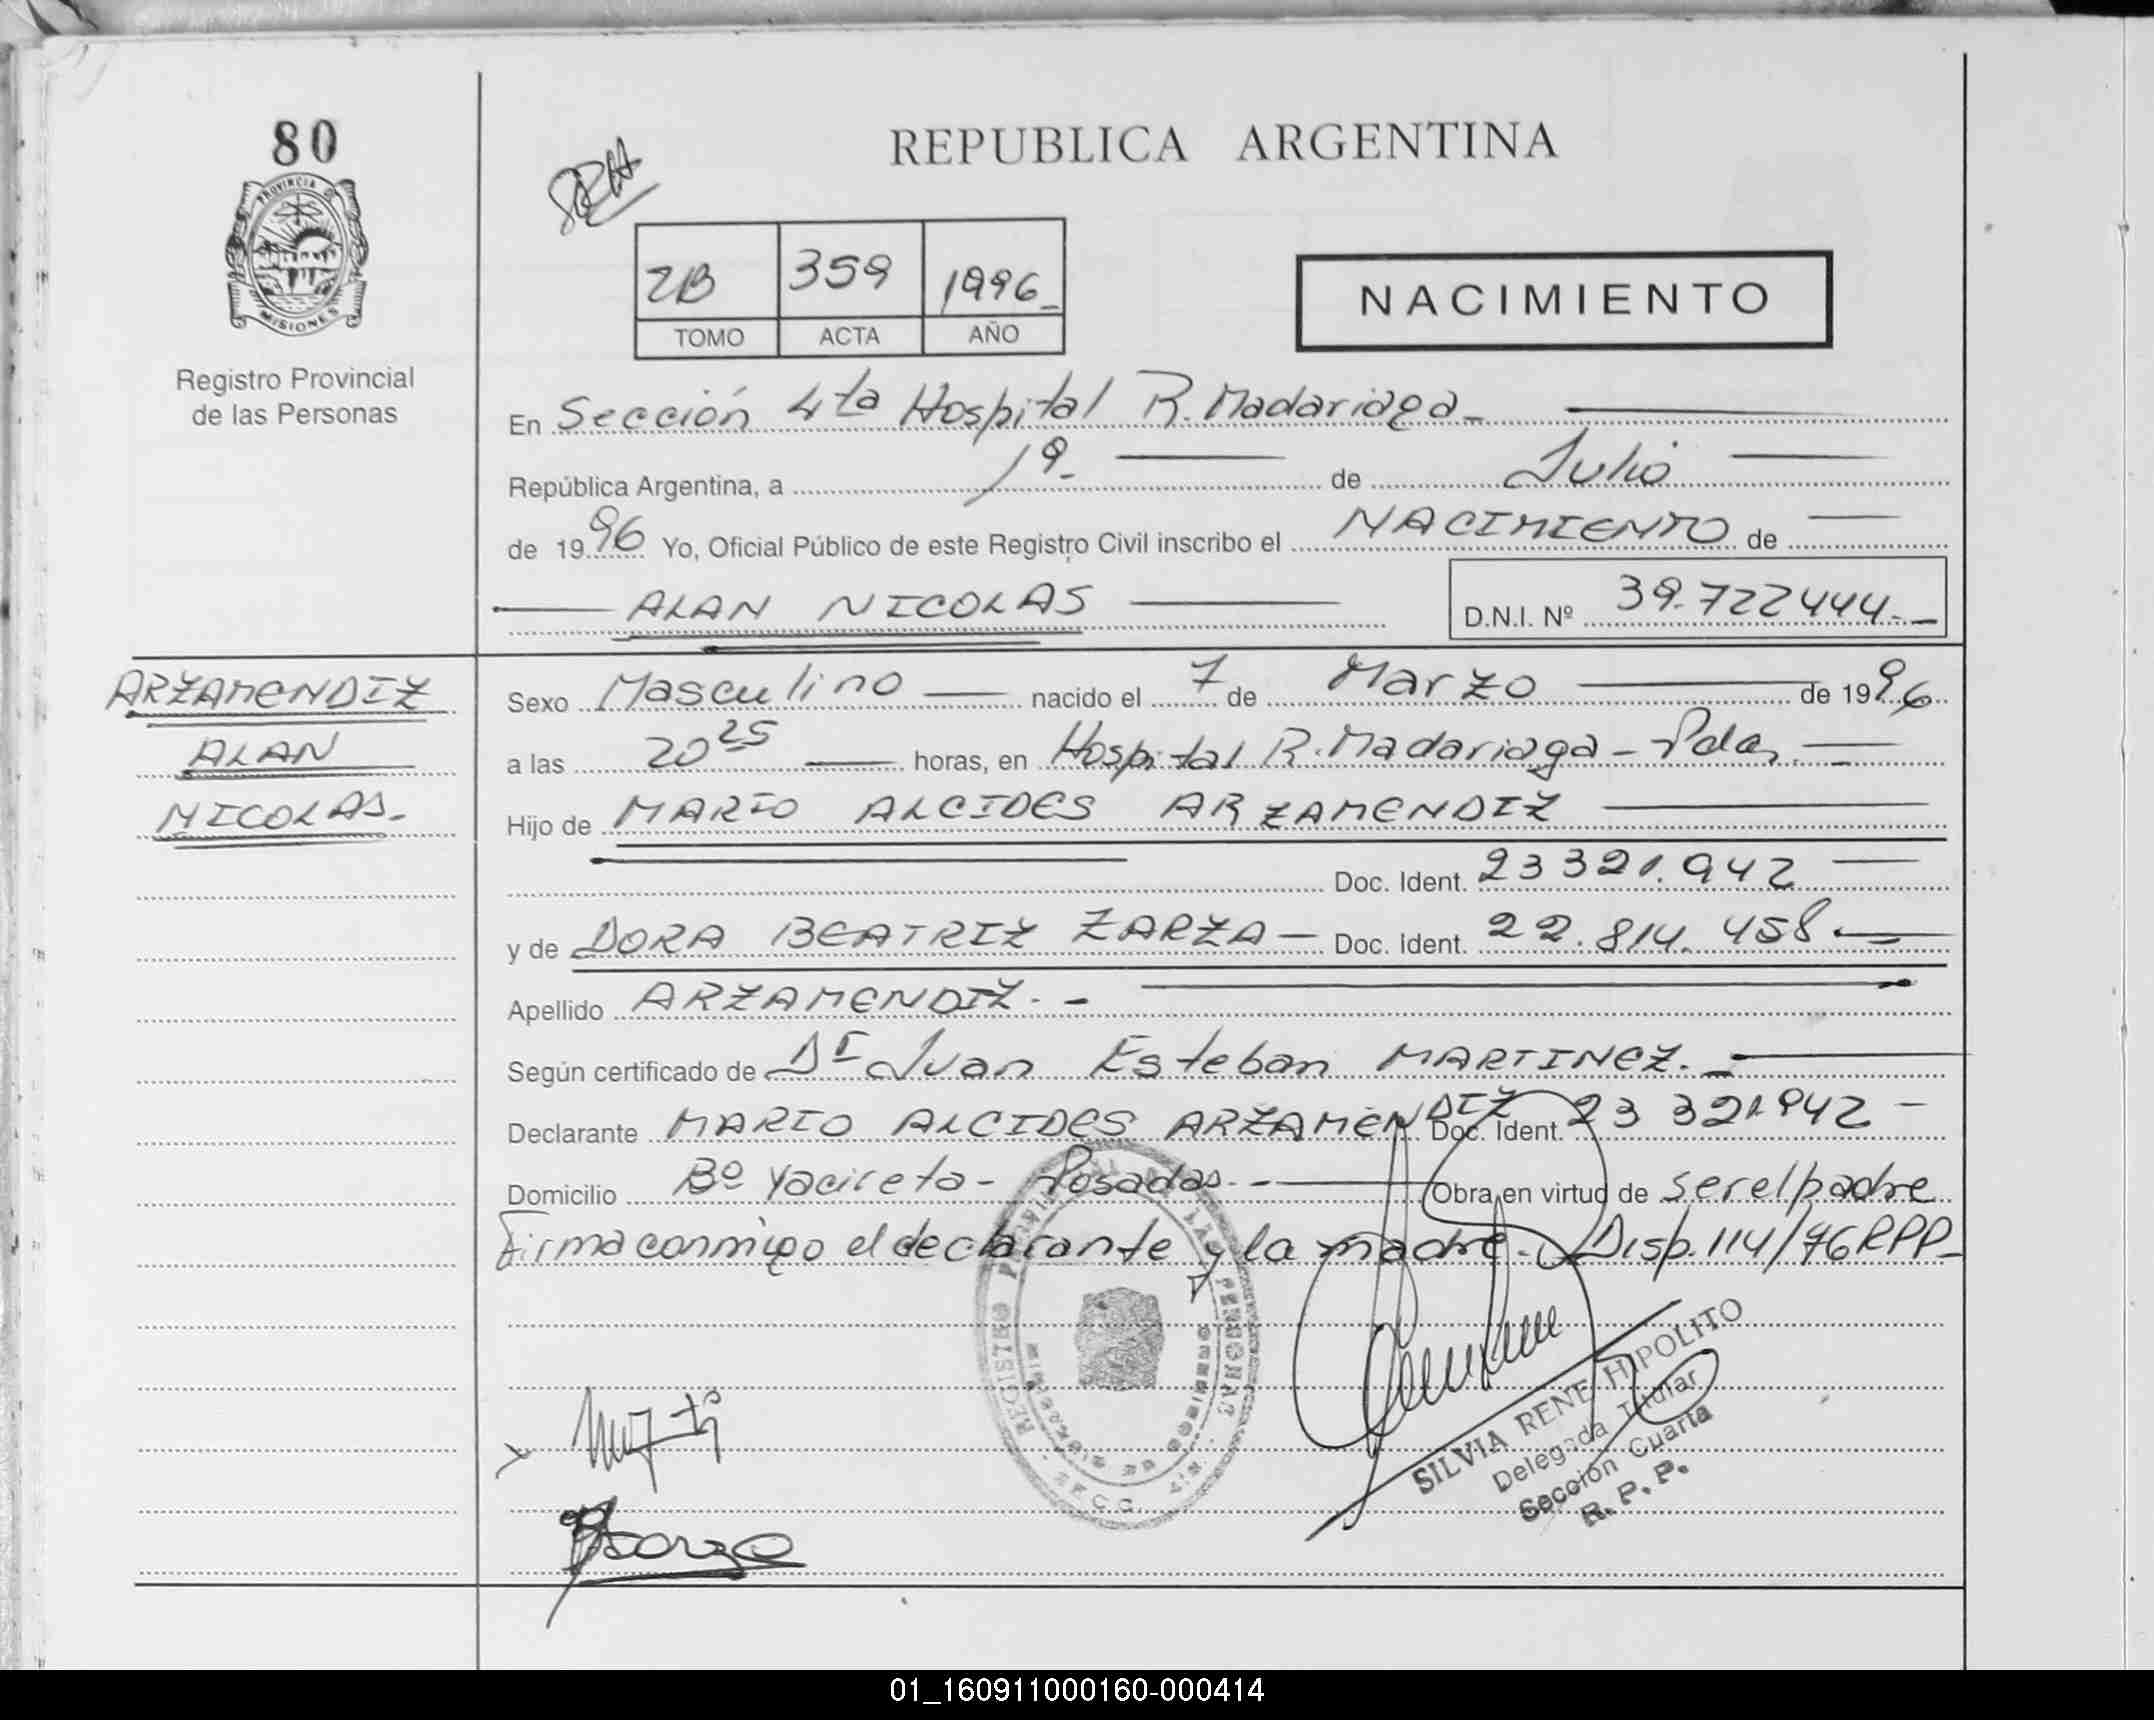 80
REPUBLICA ARGENTINA
PROVINCIA D
MISIONES
Registro Provincial
de las Personas
2B 359 1996-
TOMO ACTA AÑO
NACIMIENTO
En Sección 4ta Hospital R. Madariaga-
República Argentina, a 1º- de Julio
de 1996 Yo, Oficial Público de este Registro Civil inscribo el NACIMIENTO de
ALAN NICOLAS D.N.I. Nº 39.722444.-
ARZAMENDIZ
ALAN
NICOLAS.-
Sexo Masculino nacido el 7 de Marzo de 1996
a las 20 25 horas, en Hospital R. Madariaga - Pdas.
Hijo de MARIO ALCIDES ARZAMENDIZ
Doc. Ident. 23 321.942
y de DORA BEATRIZ ZARZA - Doc. Ident. 22.814.458.-
Apellido ARZAMENDIZ. -
Según certificado de Dr Juan Esteban MARTINEZ. -
Declarante MARIO ALCIDES ARZAMENDIZ Doc. Ident. 23 321.942 -
Domicilio Bº Yacireta - Posadas. - Obra en virtud de ser el padre
Firma conmigo el declarante y la madre. Disp. 114/76 RPP-
REGISTRO PROVINCIAL DE LAS PERSONAS
SILVIA RENE HIPOLITO
Delegada Titular
Sección Cuarta
R. P. P.
01_160911000160-000414